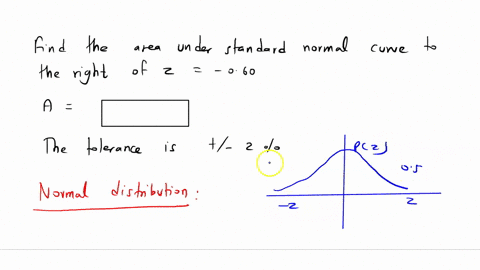 Find the area under standard normal curve to
the right of z = -0.60
A =
The tolerance is +/- 2 %
P(z)
0.5
Normal distribution :
-z z